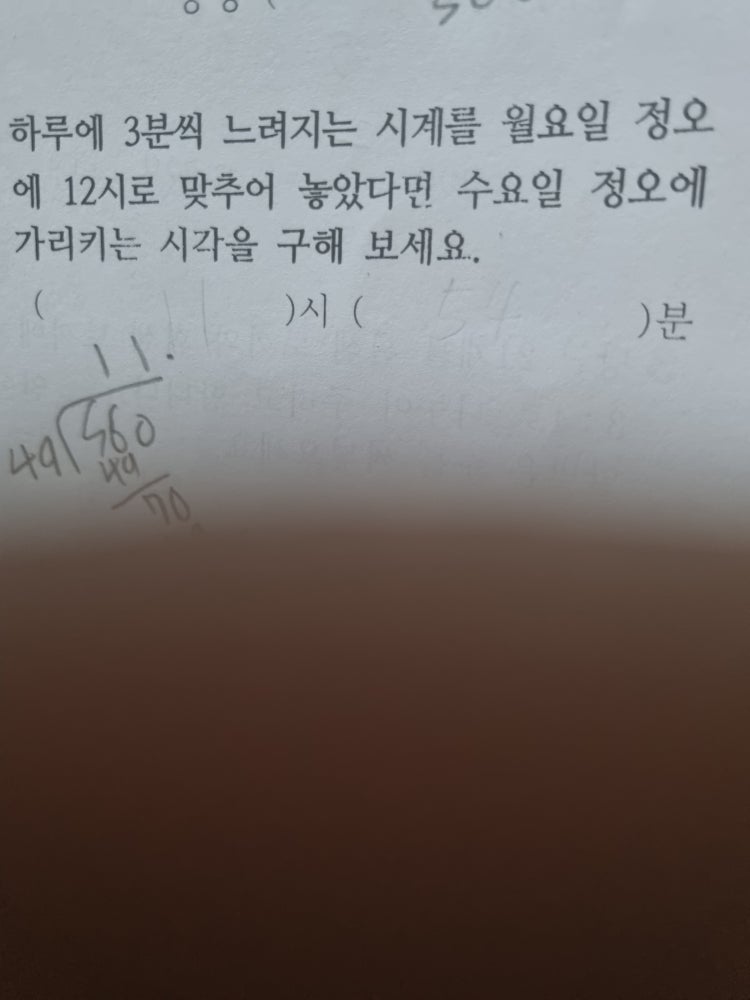 하루에 3분씩 느려지는 시계를 월요일 정오
에 12시로 맞추어 놓았다면 수요일 정오에
가리키는 시각을 구해 보세요.
( 11 )시 ( 54 )분
11.
49)560
49
70